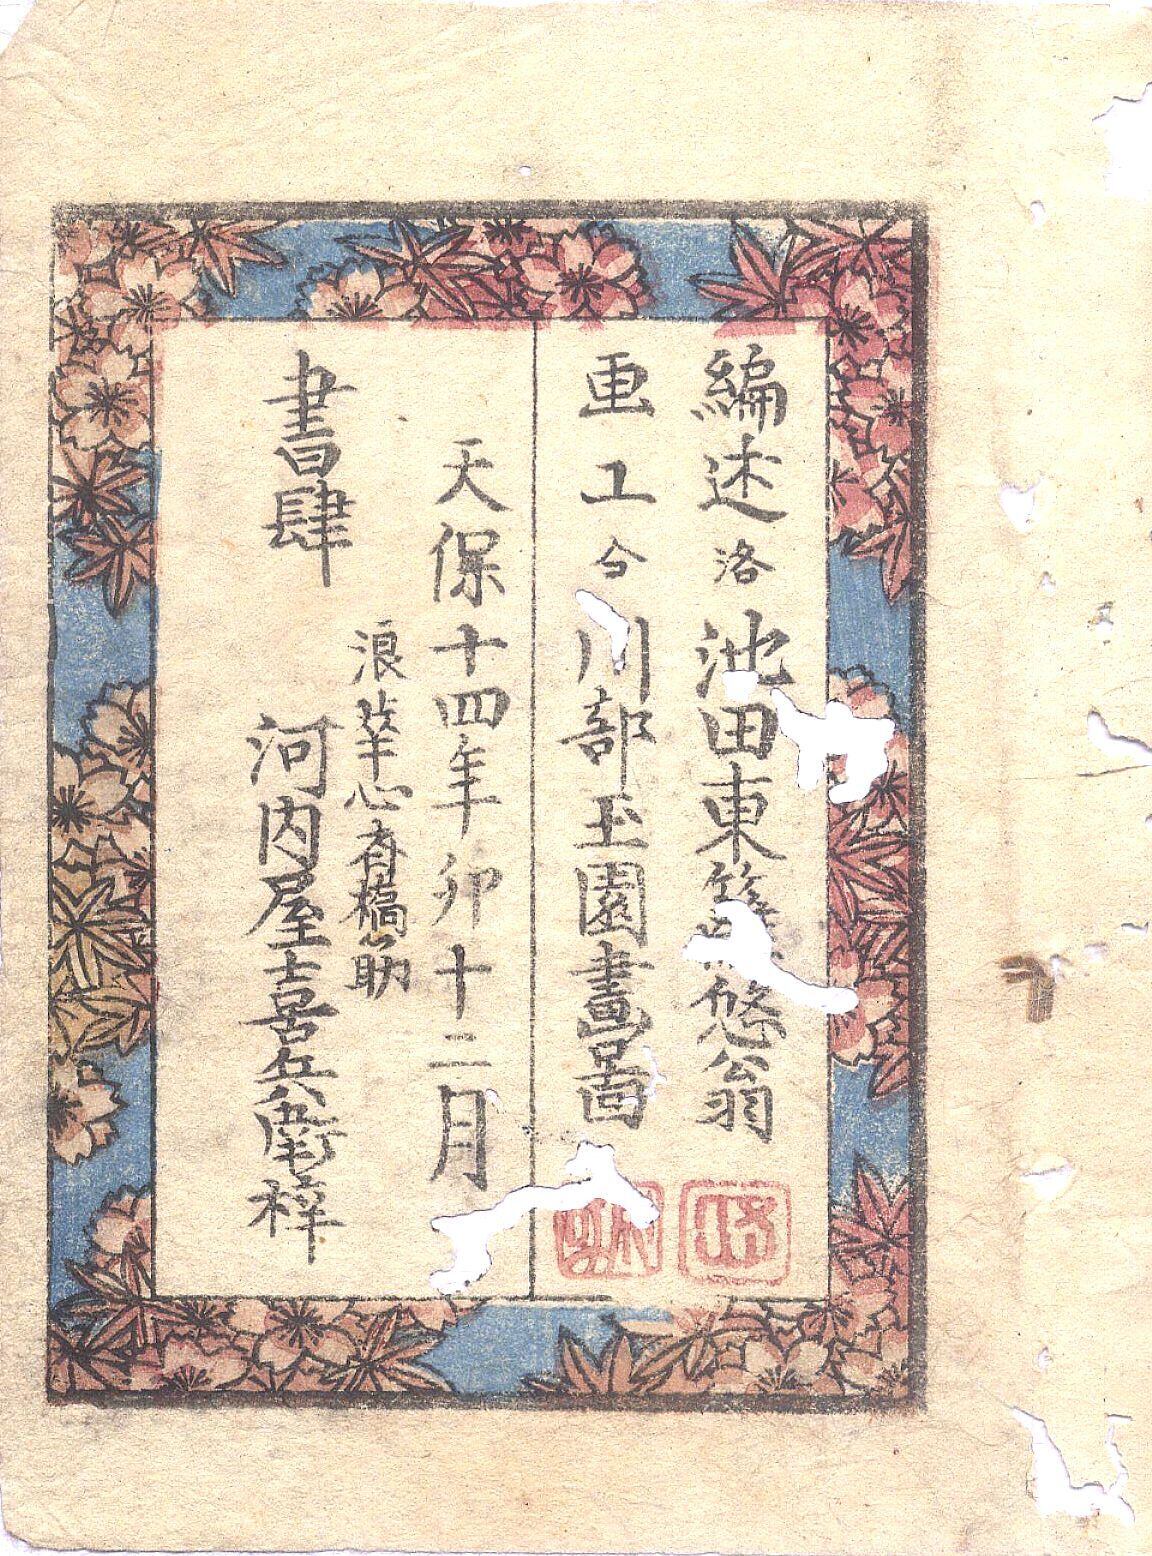 編述 洛 池田東籬 悠翁
画工 今 川部玉園畫圖
天保十四年卯十二月
浪華心斎橋筋
書肆 河内屋喜兵衛梓